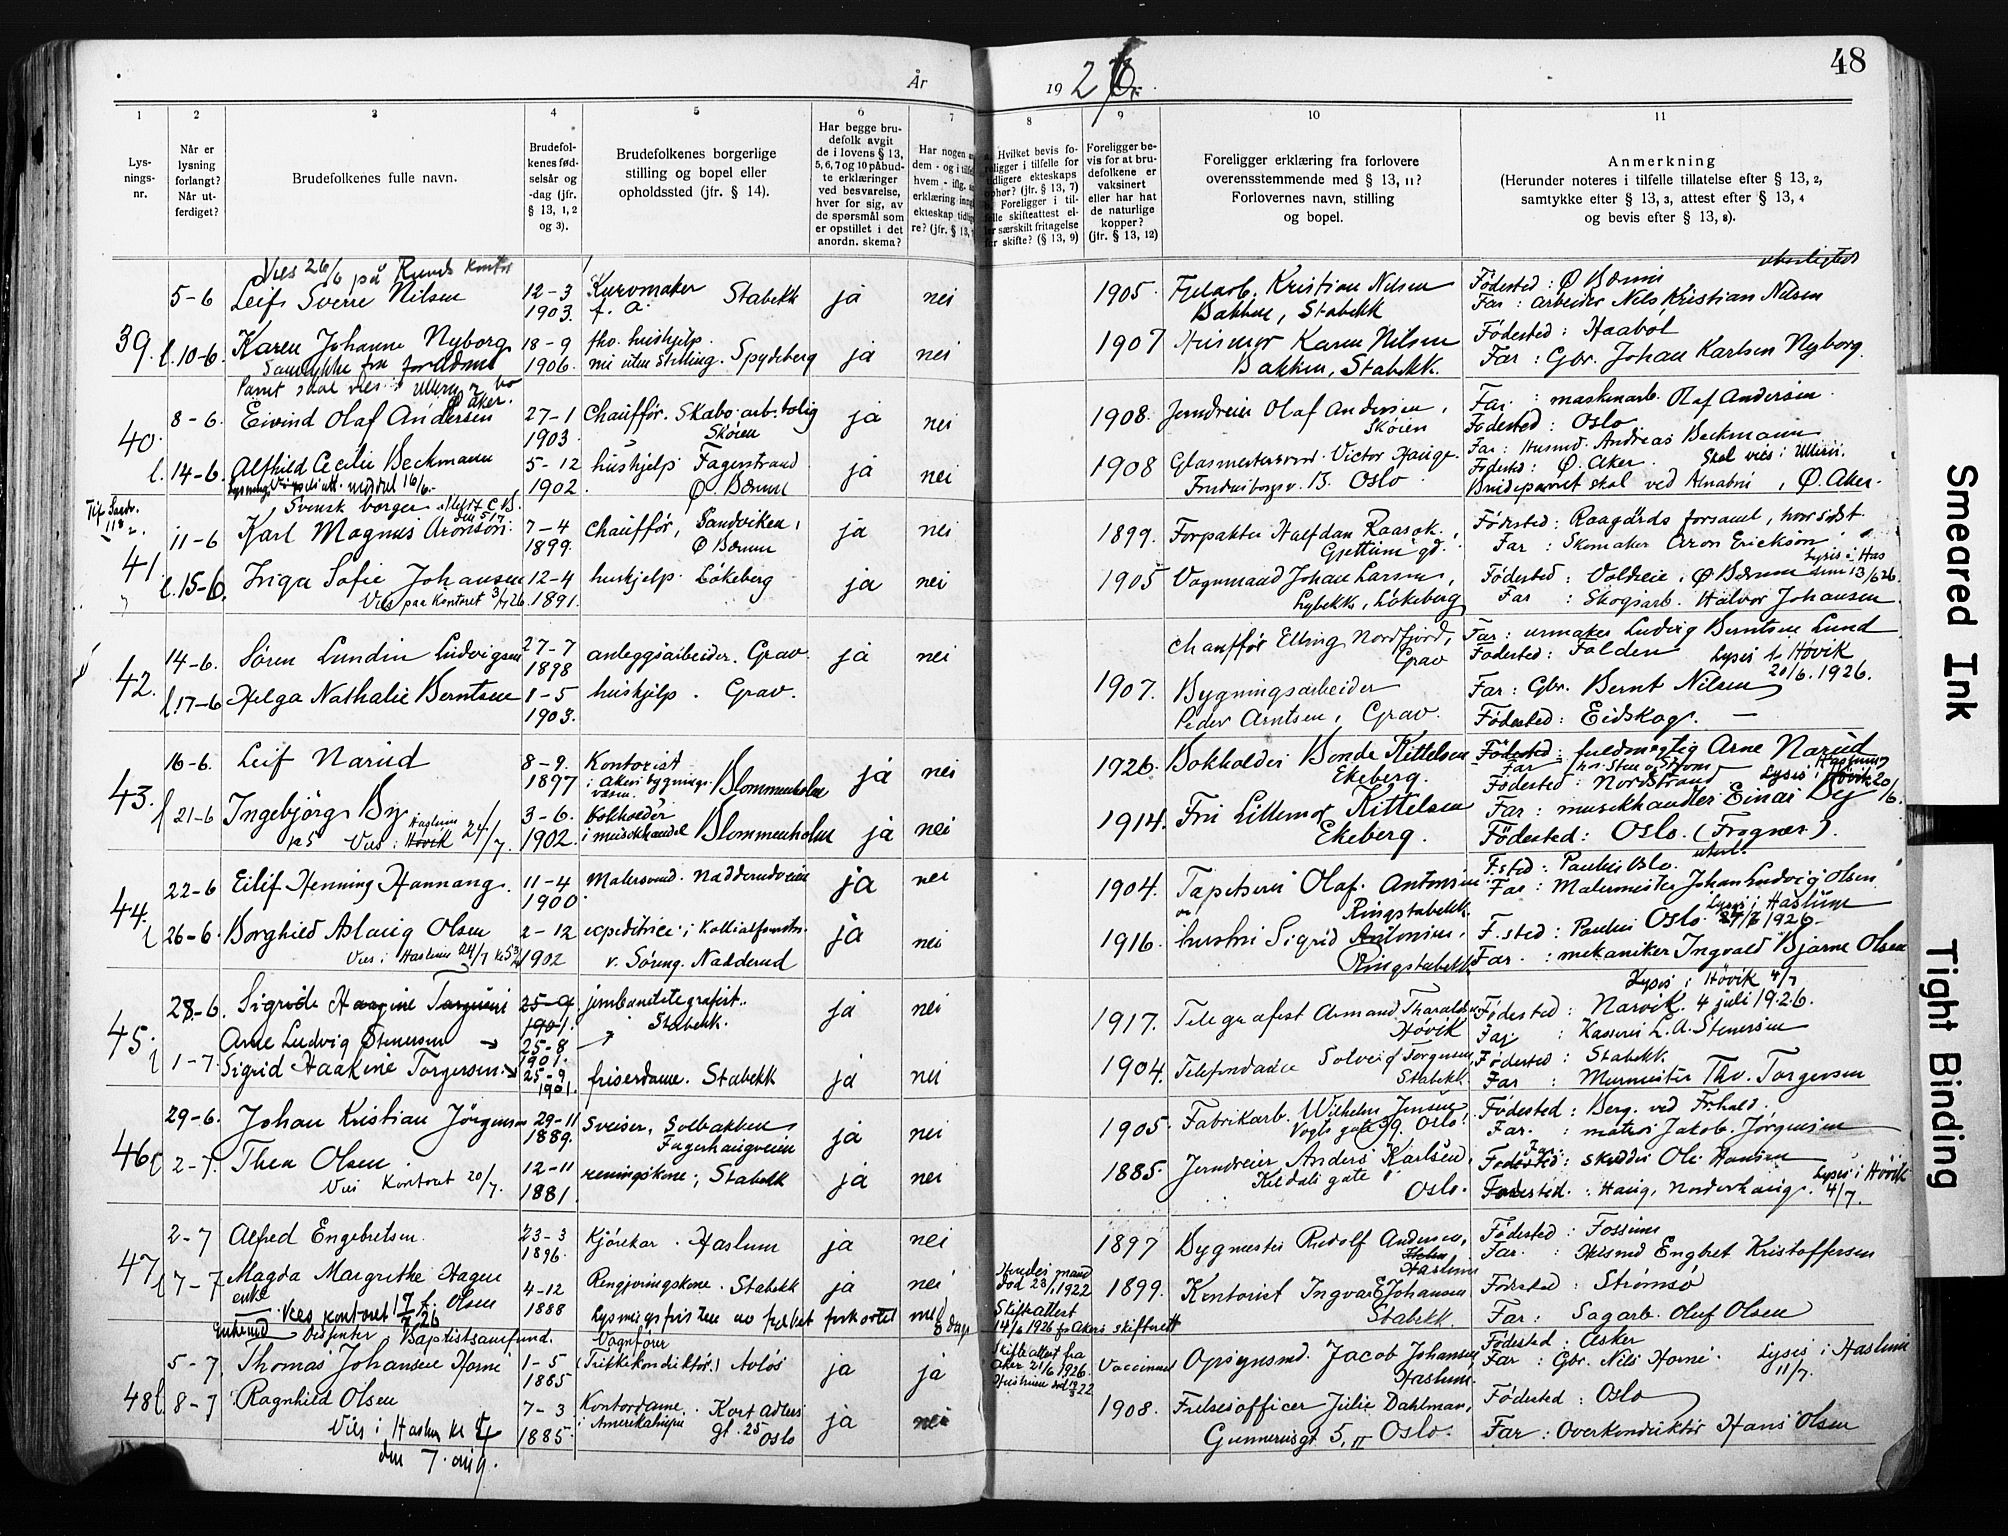 48
År
1926
1
2
3
4
5
6
7
8
9
10
11
Lys-
nings-
nr.
Når er
lysning
forlangt?
Når ut-
ferdiget?
Brudefolkenes fulle navn.
Brudefol-
kenes fød-
selsår og
-dag (jfr.
§ 13, 1, 2
og 3).
Brudefolkenes borgerlige
stilling og bopel eller
opholdssted (jfr. § 14).
Har begge bru-
defolk avgit
de i lovens § 13,
5, 6, 7 og 10 påbud-
te erklæringer
ved besvarelse,
hver for sig, av
de spørsmål som
er opstillet i det
anordn. skema?
Har nogen
dem - og i
hvem - iflg.
erklæring
ekteskap
re? (jfr. § 13,
Hvilket bevis fo-
religger i tilfelle for
tidligere ekteskaps
ophør? (jfr. § 13, 7)
Foreligger i til-
felle skifteattest el-
ler særskilt fritagelse
for skifte? (§ 13, 9)
Foreligger be-
vis for at bru-
defolkene er
vaksinert
eller har hat
de naturlige
kopper?
(jfr. § 13, 12)
Foreligger erklæring fra forlovere
overensstemmende med § 13, 11?
Forlovernes navn, stilling
og bopel.
Anmerkning
(Herunder noteres i tilfelle tillatelse efter § 13, 2,
samtykke efter § 13, 3, attest efter § 13, 4
og bevis efter § 13, 8).
Vies 26/6 på kontor
39.
5-6 Leif Sverre Nilsen 12-3 1903. Kurvmaker Stabekk ja nei 1905. Kristian Nilsen Bakken, Stabekk Fødested: Ø Bærum
Far: arbeider Nils Kristian Nilsen
l. 10-6. Karen Johanne Nyborg 18-9 1906. fhv. hushjelp. nu uten stilling. Spydeberg ja nei 1907 Husmor Karen Nilsen Bakken, Stabekk. Fødested: Haabøl
Samtykke fra forældrene Far: Gbr. Johan Karlsen Nyborg.
40.
8-6. Eivind Olaf Andersen 27-1 1903. Chauffør. Skabo arb.bolig Skøien ja nei 1908. Jerndreier Olaf Andersen, Skøien Far: maskinarb. Olaf Andersen.
Fødested: Oslo
l. 14-6. Alfhild Cecilie Beckmann 5-12 1902. hushjelp Fagerstrand Ø. Bærum ja nei 1908 Glasmestersvend Victor Hauge B. Oslo Far: Husmd. Andreas Beckmann
Fødested: Ø. Aker. Skal vies i Ullern.
Brudeparret skal ved Alnabru, Ø. Aker.
Svensk borger
41.
11-6 Karl Magnus Aronson. 7-4 1899. Chauffør, Sandviken, Ø Bærum ja nei 1899. Forpakter Halfdan Gjettum gd. Fødested: Raagårds forsaml,
Far: Skomaker Aron Erickson
l. 15-6. Inga Sofie Johansen 12-4 1891. hushjelp. Løkeberg ja nei 1905 Vognmand Johan Larsen, Lybekk, Løkeberg Fødested: Voldveie, Ø Bærum
Vies paa kontoret 3/7 26. Far: Skogsarb. Halvor Johansen.
42.
14-6. Søren Lundin Ludvigsen 27-7 1898 anleggsarbeider. Grav. ja nei Chauffør Elling Nordfjord, Grav Far: urmaker Ludvig Berntsen Lund
Fødested: Folden Lyses i Høvik 20/6. 1926.
l. 17-6 Helga Nathalie Berntsen 1-5 1903. hushjelp. Grav. 1907. Bygningsarbeider Peder Arntsen, Grav. Far: Gbr. Bernt Nilsen
Fødested: Eidskog.
43.
16-6. Leif Narud 8-9. 1897 Kontorist i Akers bygnings-væsen. Blommenholm ja nei 1926. Bokholder Bonde Kittelsen Ekeberg. Fødested: fuldmægtig Arne Narud
Fødested: Nordstrand
l. 21-6 Ingebjörg By 3-6. 1902. bokholder i musikhandel Blommenholm ja nei 1914. Fru Lillemor Kittelsen Ekeberg. Far: musikhandler Einar By
Vies i Haslum Høvik 24/7. Fødested: Oslo. (Frogner).
44.
22-6 Eilif Henning Hannang. 11-4 1900. Malersvend. Nadderudveien ja nei 1904. Tapetserer Olaf Antonsen Ringstabekk F.sted: Paulus Oslo.
Far: Malermester Johan Ludvig Olsen
l. 26-6. Borghild Aslaug Olsen 2-12 1902 expeditrice i v. Søreng. Nadderud ja nei 1916. hustru Sigrid Antonsen, Ringstabekk F.sted: Paulus Oslo. Lyses i Haslum 1926
Vies i Haslum 24/7 Far.: mekaniker Ingvald Bjarne Olsen
45.
28-6. Sigrid Haagine Torgersen 25-9 1901. jernbanetelegrafist. Stabekk. ja nei 1917. Telegrafist Armand Tharaldsen Høvik Lyses i Høvik 4/7
Fødested: Narvik. 4 juli 1926.
Arne Ludvig Stenersen 25-8 1901. Far: Kasserer L. A. Stenersen
l. 1-7. Sigrid Haakine Torgersen. 25-9 1901. friserdame. Stabekk ja nei 1904. Telefondame Solveig Torgersen, Stabekk. Fødested: Stabekk.
Far: Murmester Thv. Torgersen
46
29-6. Johan Kristian Jörgensen 29-11 1889. Sveiser. Solbakken, Fagerhaugveien ja nei 1905. Fabrikarb. Wilhelm Jensen, Vogts gate 39. Oslo. Fødested: Berg. ved Frhald.
Far.: matros Jacob Jørgensen
l. 2-7. Thea Olsen 12-11 1881. reningskone, Stabekk ja nei 1885. Jerndreier Anders Karlsen, gate Oslo. Far: skredder Ole Hansen
Vies Kontoret 20/7. Fødested.: Haug, Norderhaug. Lyses i Høvik 4/7.
47
2-7 Alfred Engebretsen. 23-3 1896. Kjörekar. Haslum ja nei 1897 Bygmester Rudolf Andersen, Haslum Fødested: Fossum
Far.: Husmd Engbret Kristoffersen
l. 7-7 Magda Margrethe Hagen enke f. Olsen 4-12 1888 Rengjøringskone. Stabekk ja nei Hendes mand död 23/1. 1922 Skifteattest 14/6 1926 fr Akers skifterett 1899. Kontorist Ingvar Johansen Stabekk. Fødested: Strømsø
Vies kontoret 19/7-26 Lysningsfristen forkortet 8 dage Far: Sagarb. Oluf Olsen
Enkemd Baptistsamfund.
48
5-7 Thomas Johansen Horni 1-5 1885 Vognfører (Trikkekonduktör.) Avlös ja ja Skifteattest fra Aker 21/6 1926. Vaccineret Opsynsmd. Jacob Johansen Haslum. Fødested: Asker
Far: Gbr. Nils Horni. Lyses i Haslum 11/7.
l. 8-7 Ragnhild Olsen 7-3 1885. Kontordame i Amerikalinjen Kort Adlers gt. 25 Oslo ja nei 1908. Frelsesofficer Julie Dahlman, Gunnerusgt 5, II Oslo. Fødested: Oslo
Vies i Haslum kl Far: Overkonduktör Hans Olsen
den 7. aug.
Smeared Ink
Tight Binding